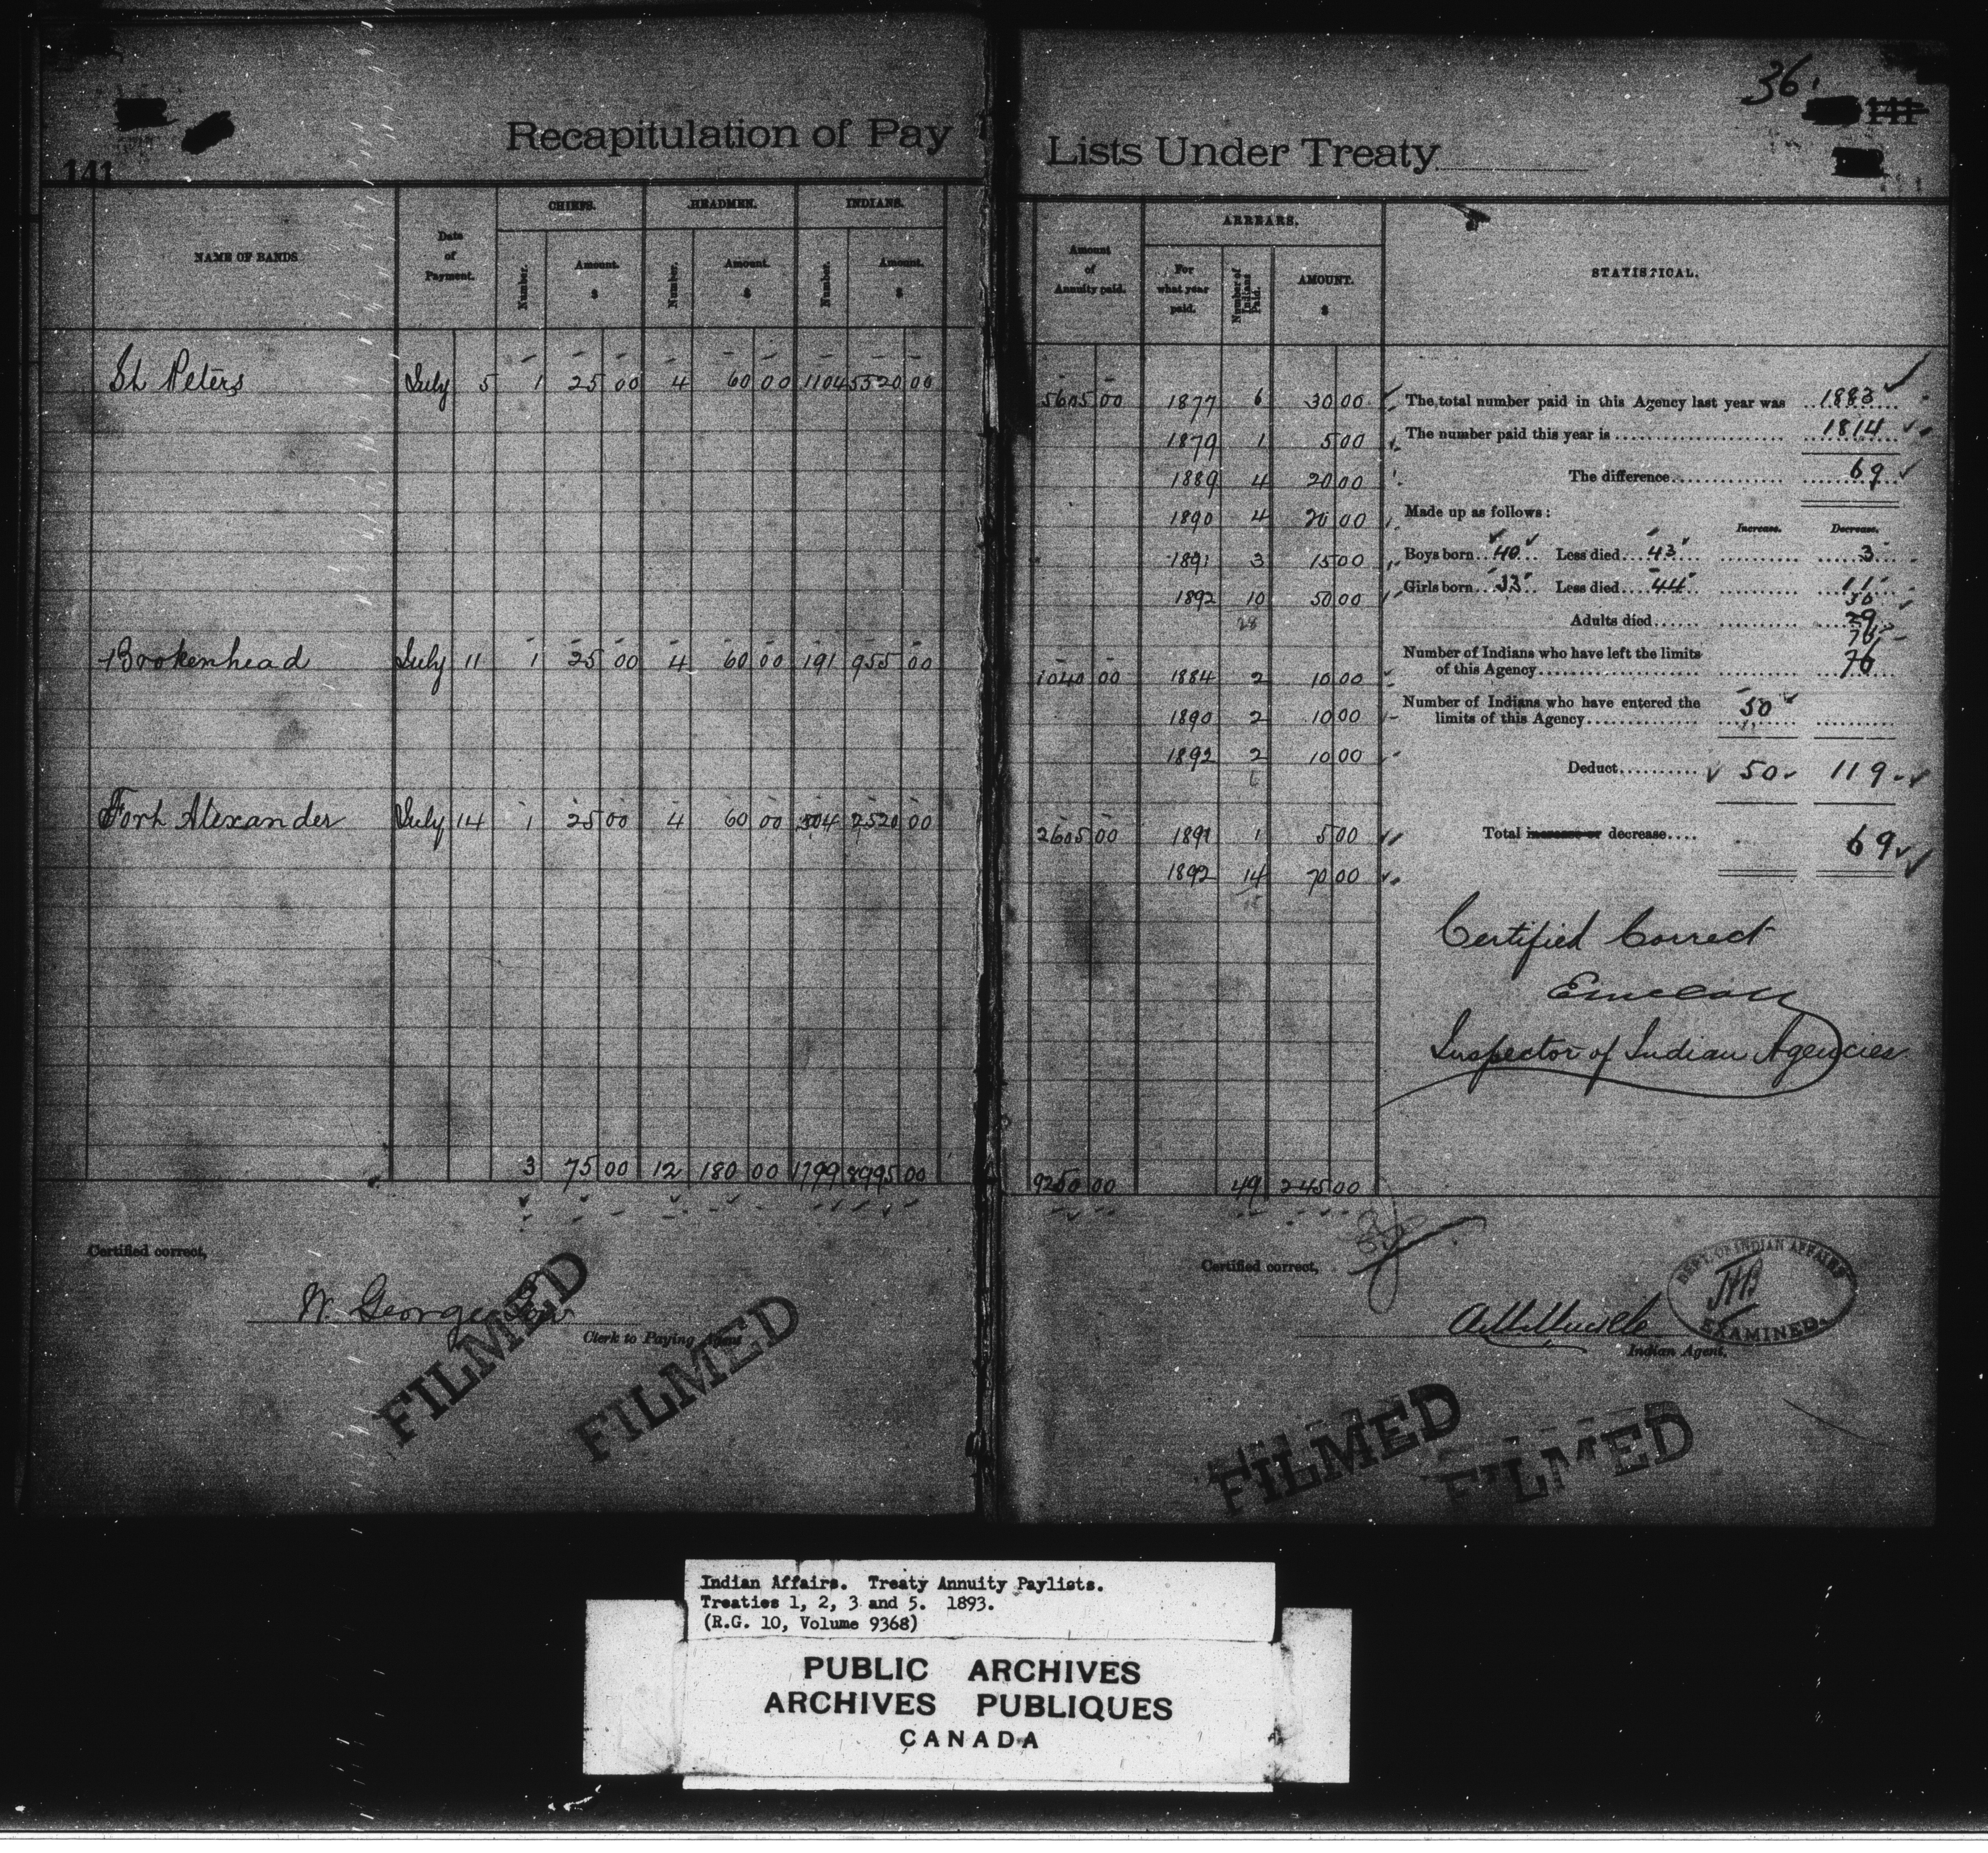 36.
141
141
Recapitulation of Pay Lists Under Treaty
NAME OF BANDS
Date of Payment.
CHIEFS.
Number.
Amount. $
HEADMEN.
Number.
Amount. $
INDIANS.
Number.
Amount. $
Amount of Annuity paid.
ARREARS.
For what year paid.
Number of Indians Paid.
AMOUNT. $
STATISTICAL.
St Peters July 5 1 25 00 4 60 00 1104 5520 00 5605 00 1877 6 30 00
1879 1 5 00
1889 4 20 00
1890 4 20 00
1891 3 15 00
1892 10 50 00
28
Brokenhead July 11 1 25 00 4 60 00 191 955 00 1040 00 1884 2 10 00
1890 2 10 00
1892 2 10 00
6
Fort Alexander July 14 1 25 00 4 60 00 504 2520 00 2605 00 1891 1 5 00
1892 14 70 00
15
3 75 00 12 180 00 1799 8995 00 9250 00 49 245 00
The total number paid in this Agency last year was 1883
The number paid this year is 1814
The difference 69
Made up as follows:
Increase. Decrease.
Boys born 40 Less died 43 3
Girls born 33 Less died 44 11
Adults died 29
Number of Indians who have left the limits
of this Agency 76
Number of Indians who have entered the
limits of this Agency 50
Deduct 50 119
Total increase or decrease 69
Certified Correct
Inspector of Indian Agencies
Certified correct,
W. George
Clerk to Paying Agent
Certified correct,
Indian Agent.
DEPT. OF INDIAN AFFAIRS
EXAMINED.
FILMED
FILMED
FILMED
FILMED
Indian Affairs. Treaty Annuity Paylists.
Treaties 1, 2, 3 and 5. 1893.
(R.G. 10, Volume 9368)
PUBLIC ARCHIVES
ARCHIVES PUBLIQUES
CANADA